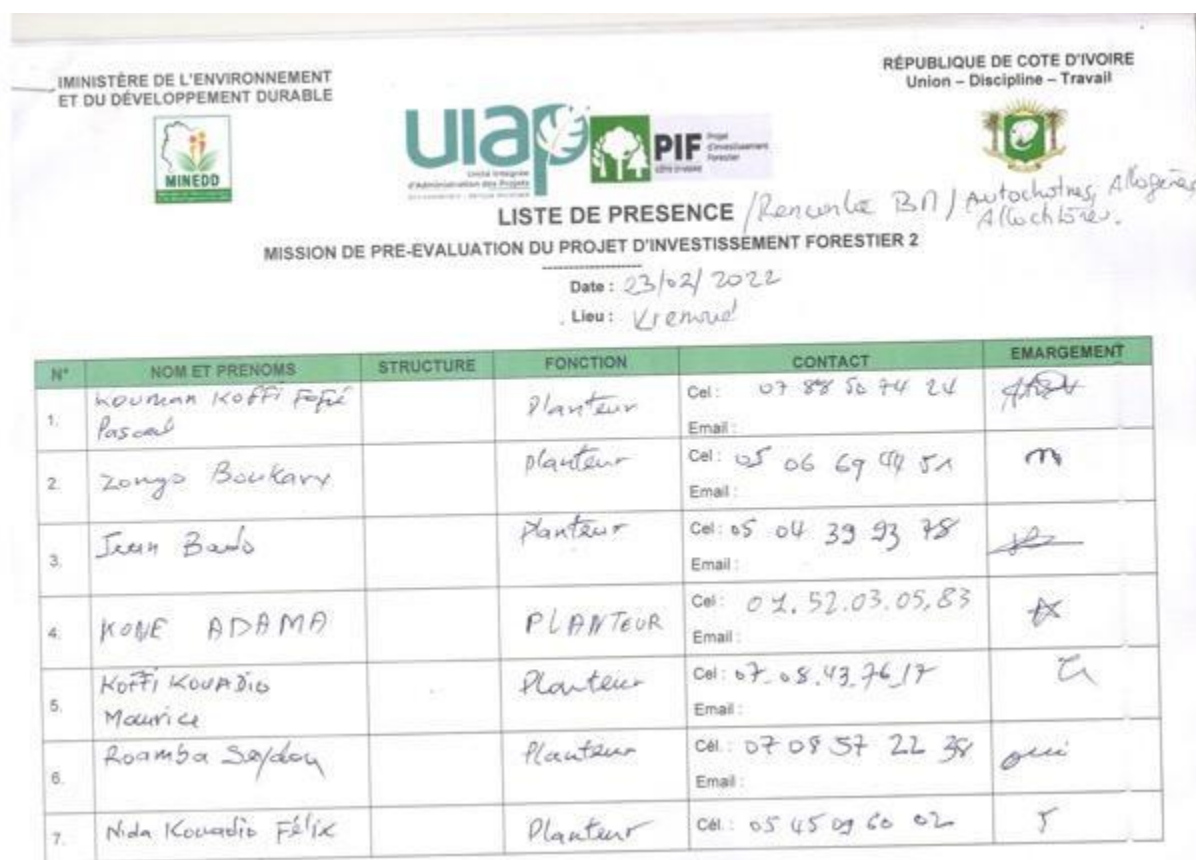 IMINISTÈRE DE L'ENVIRONNEMENT
ET DU DÉVELOPPEMENT DURABLE
MINEDD
RÉPUBLIQUE DE COTE D'IVOIRE
Union – Discipline – Travail
UIAP
Unité Intégrée
d'Administration des Projets
PIF
Projet
d'Investissement
Forestier
CÔTE D'IVOIRE
LISTE DE PRESENCE /Rencontre BM/ Autochotnes, Allogènes,
Allochtones.
MISSION DE PRE-EVALUATION DU PROJET D'INVESTISSEMENT FORESTIER 2
Date : 23/02/2022
Lieu :
N° NOM ET PRENOMS STRUCTURE FONCTION CONTACT EMARGEMENT
1. Kouman Koffi Fofié Pascal Planteur Cel : 07 88 50 74 24
Email :
2. Zongo Boukary planteur Cel : 05 06 69 44 51
Email :
3. Jean Planteur Cel : 05 04 39 93 78
Email :
4. KONE ADAMA PLANTEUR Cel : 01.52.03.05.83
Email :
5. Koffi KOUADIO Maurice Planteur Cel : 07.08.43.76.17
Email :
6. Roamba Seydou Planteur Cél. : 07 08 57 22 38 oui
Email :
7. Nida Kouadio Félix Planteur Cél. : 05 45 09 60 02